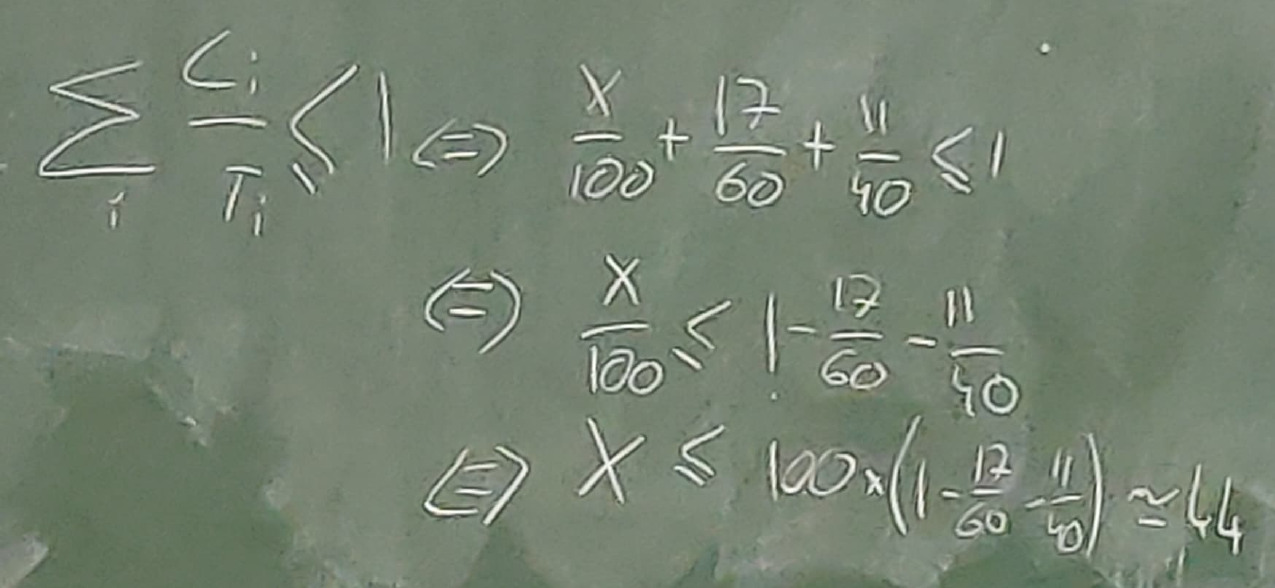 ∑_i C_i/T_i ≤ 1 (=) X/100 + 17/60 + 11/40 ≤ 1
(=) X/100 ≤ 1 - 17/60 - 11/40
(=) X ≤ 100 × (1 - 17/60 - 11/40) ≃ 44